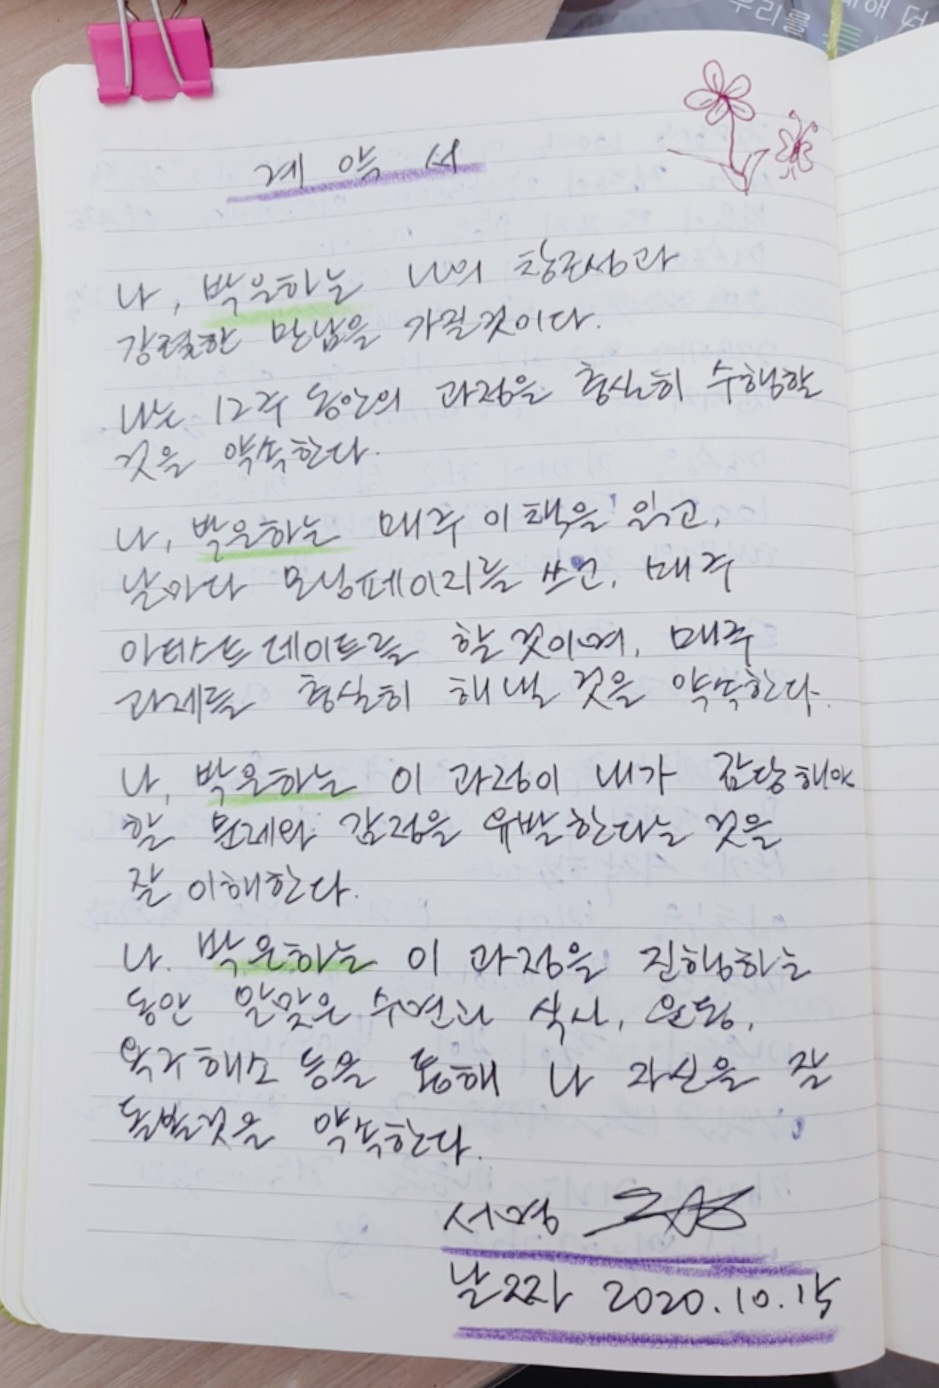 우리를
계약서
나, 박은하는 나의 창조성과
강렬한 만남을 가질것이다.
나는 12주 동안의 과정을 충실히 수행할
것을 약속한다.
나, 박은하는 매주 이 책을 읽고,
날마다 모닝페이지를 쓰고, 매주
아티스트 데이트를 할 것이며, 매주
과제를 충실히 해낼 것을 약속한다.
나, 박은하는 이 과정이 내가 감당해야
할 문제와 감정을 유발한다는 것을
잘 이해한다.
나. 박은하는 이 과정을 진행하는
동안 알맞은 수면과 식사, 운동,
욕구해소 등을 통해 나 자신을 잘
돌볼것을 약속한다.
서명
날짜 2020.10.15